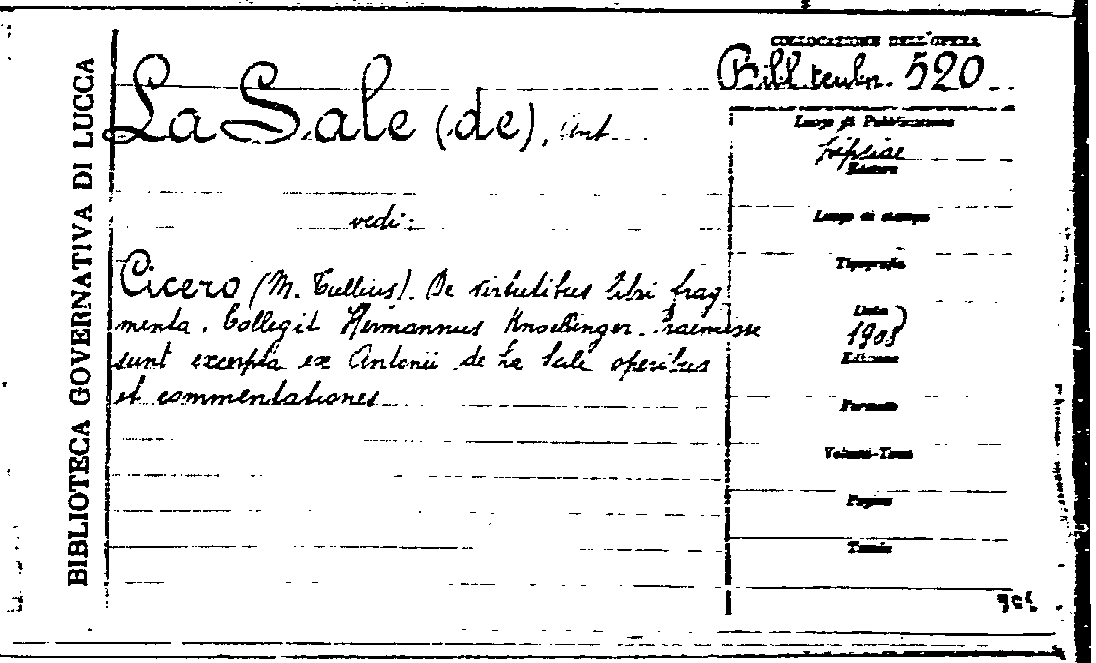 BIBLIOTECA GOVERNATIVA DI LUCCA
COLLOCAZIONE DELL'OPERA
Bibl. teubn. 520
La Sale (de), Ant
Luogo di Pubblicazione
Lipsiae
Editore
vedi:
Luogo di stampa
Tipografia
Cicero (M. Tullius). De virtutibus libri frag
menta. Collegit Hermannus Knoellinger. Praemissa
sunt excerpta ex Antonii de La Sale operibus
et commentationes
Data
1908
Edizione
Formato
Volumi-Tomi
Pagine
Tavole